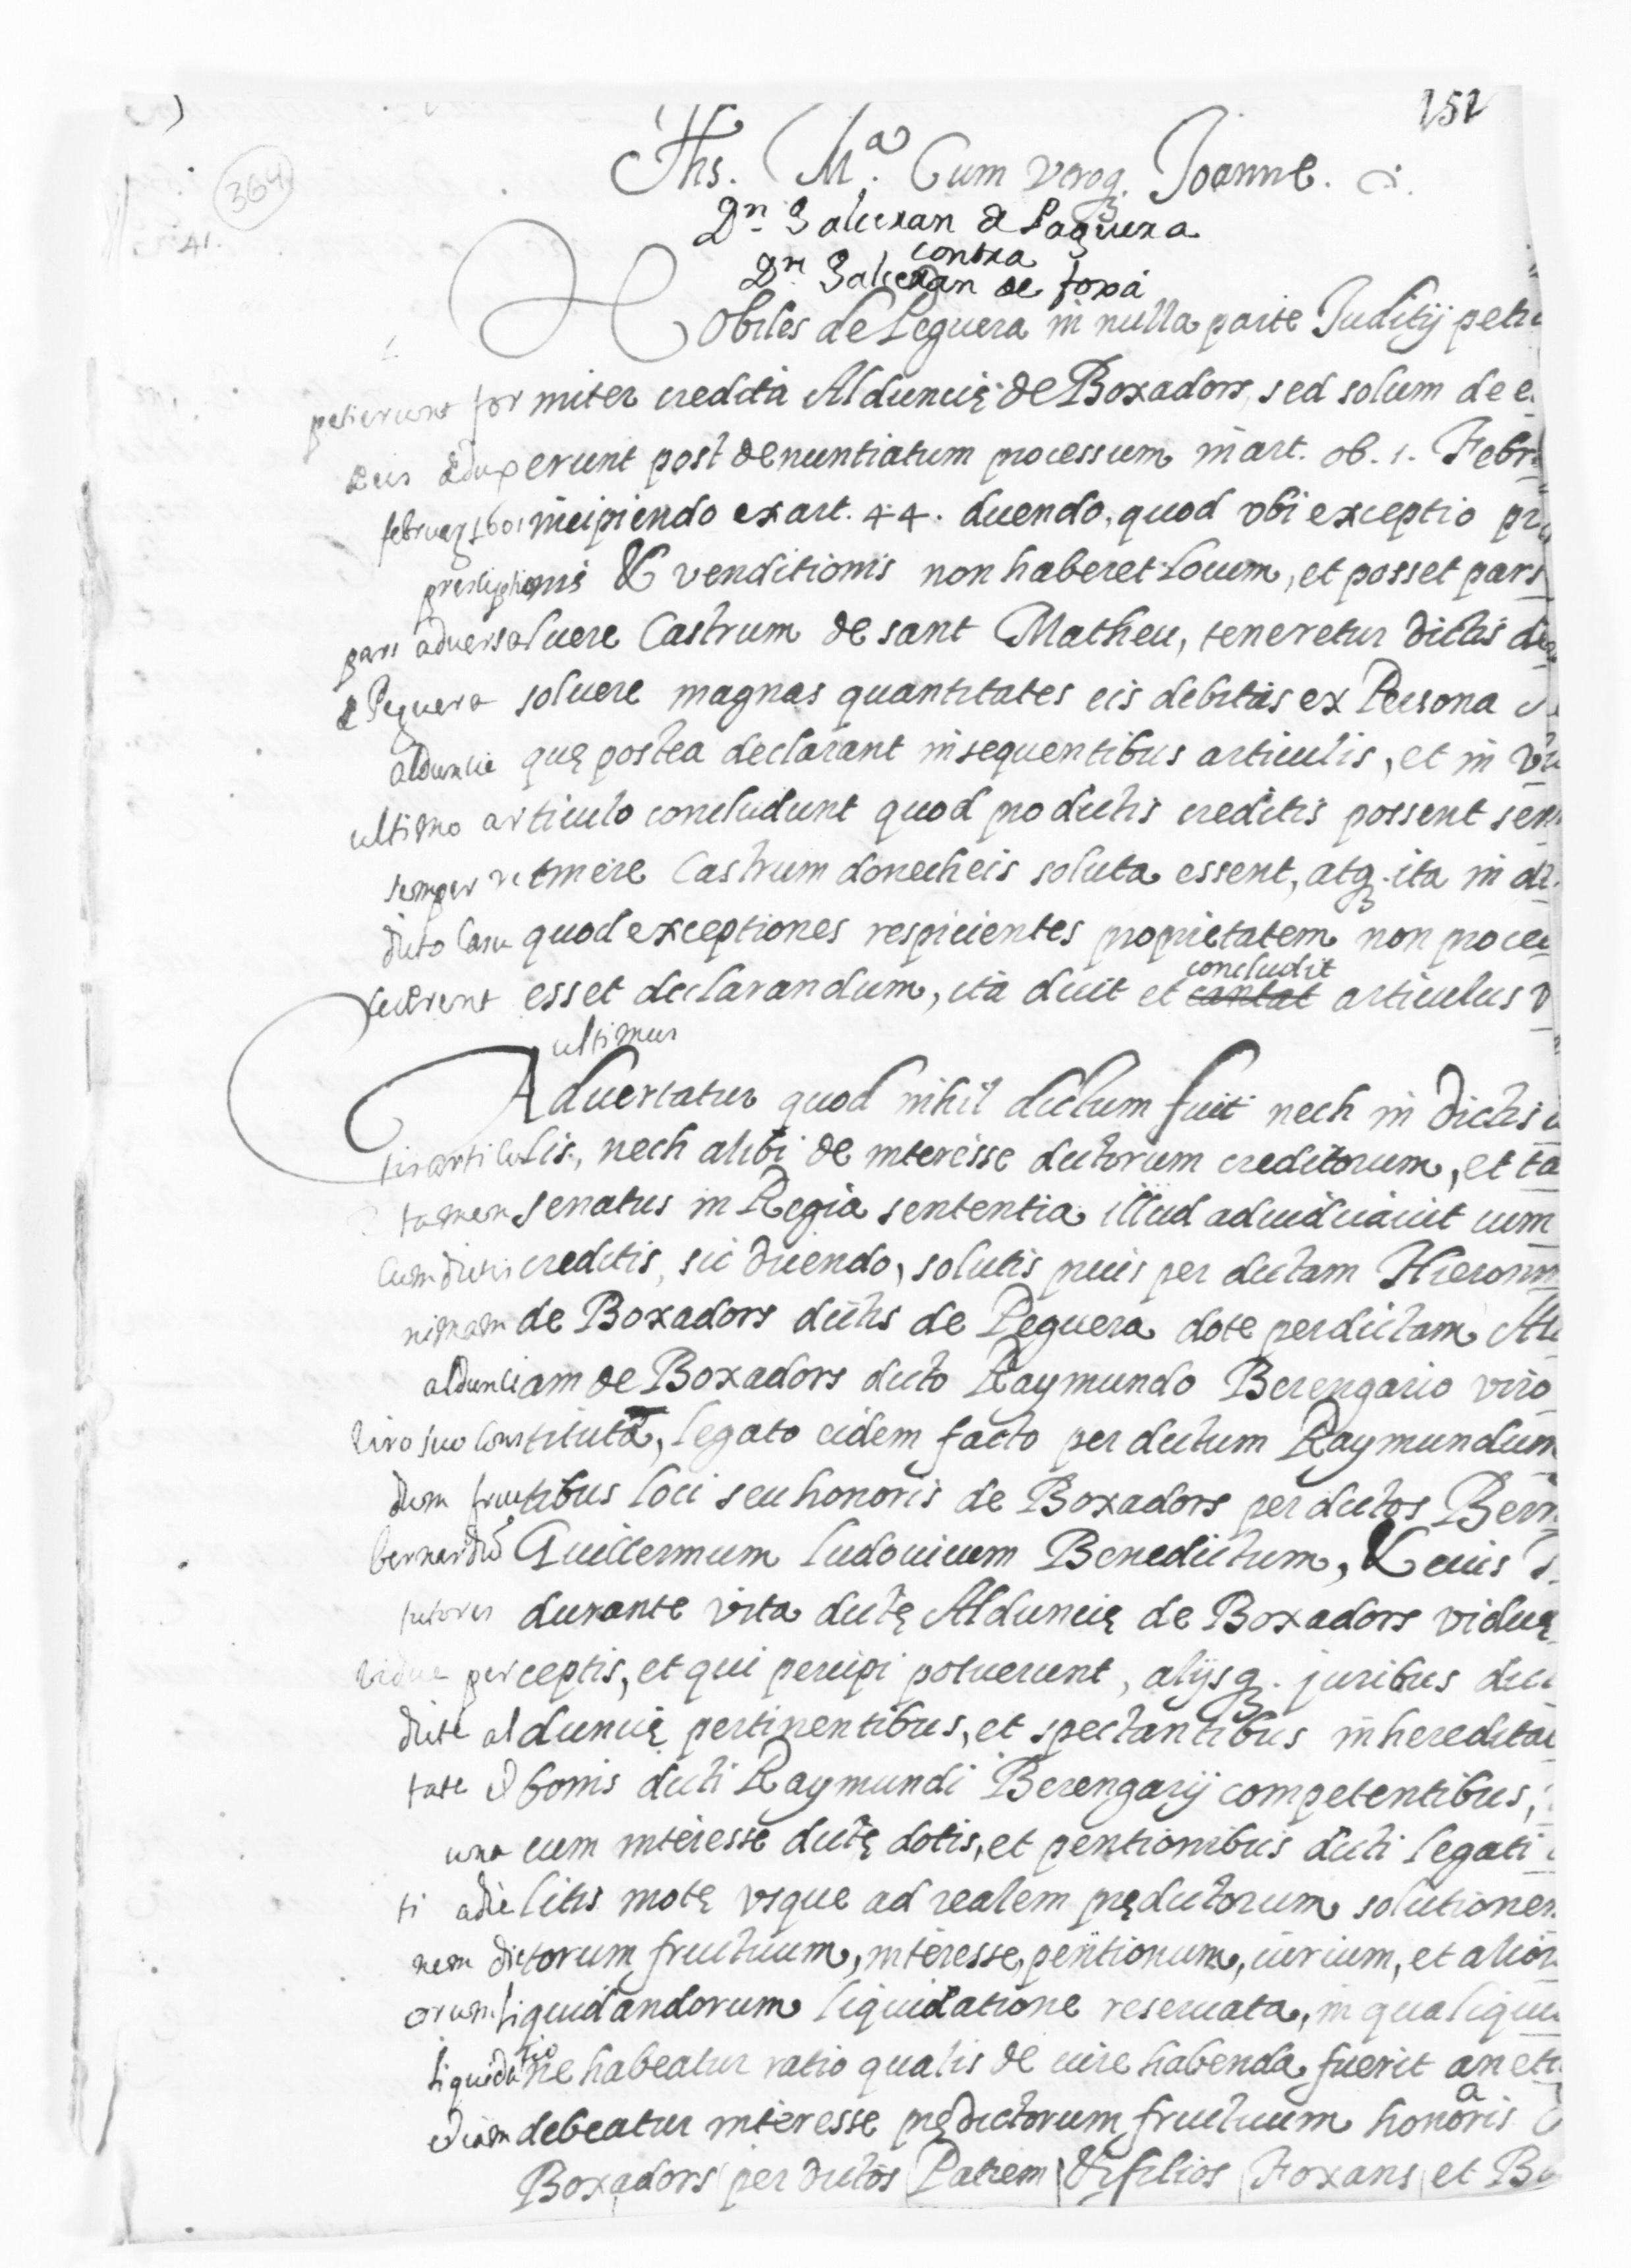 252
364
41.
Jhs. Mª. Cum vtroq. Joanne.
Dn. Galceran de Paguera
contra
Dn. Galceran de foxá
Nobiles de Peguera in nulla parte Juditij peti
petierunt formiter credita Alduncię de Boxadors, sed solum de e
de eis deduxerunt post denuntiatum processum in art. ob. 1. Febr
februarij 1601 incipiendo ex art. 44. dicendo, quod vbi exceptio pr
prescriptionis & venditionis non haberet locum, et posset pars
pars aduersa luere Castrum de sant Matheu, teneretur dictis de
de Peguera soluere magnas quantitates eis debitas ex Persona
alduncie quę postea declarant in sequentibus articulis, et in vl
ultimo articulo concludunt quod pro dictis creditis possent sem
semper retinere Castrum donech eis soluta essent, atq. ita in di
dicto Casu quod exceptiones respicientes proprietatem non proce
cederent esset declarandum, ita dicit et cantat concludit articulus v
ultimus
Aduertatur quod nihil dictum fuit nech in dictis
articulis, nech alibi de interesse dictorum creditorum, et ta
tamen senatus in Regia sententia illud adiudicauit cum
Cum dictis creditis, sic dicendo, solutis prius per dictam Hieroni
nimam de Boxadors dictis de Peguera dote per dictam Al
aldunciam de Boxadors dicto Raymundo Berengario viro
viro suo constituta, legato eidem facto per dictum Raymundum
dum fructibus loci seu honoris de Boxadors per dictos Bern
bernardū Guillermum Ludouicum Benedictum, & eius
tutores durante vita dictę Alduncię de Boxadors viduę
vidue perceptis, et qui percipi potuerunt, alijsq. juribus dic
dicte alduncię pertinentibus, et spectantibus in heredita
tate et bonis dicti Raymundi Berengarij competentibus,
una cum interesse dictę dotis, et pentionibus dicti legati
ti a die litis motę vsque ad realem prędictorum solutionem
nem dictorum fructuum, interesse, pentionum, iurium, et alior
orum liquidandorum liquidatione reseruata, in qua liqui
liquidatione habeatur ratio qualis de iure habenda fuerit an eti
etiam debeatur interesse prędictorum fructuum honoris
Boxadors per dictos Patrem & filios Foxans et B